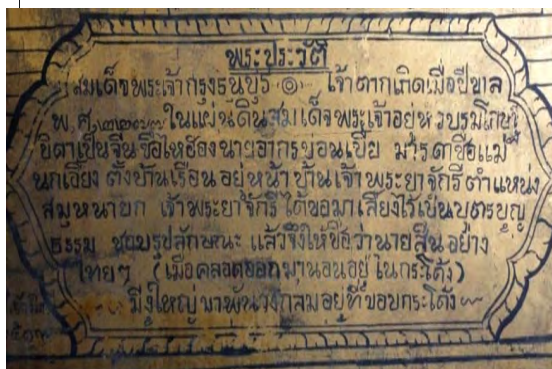 พระประวัติ
สมเด็จพระเจ้ากรุงธนบุรี ๏ เจ้าตากเกิดเมื่อปีขาล
พ.ศ. ในแผ่นดินสมเด็จพระเจ้าอยู่หัวบรมโกษฐ
บิดาเป็นจีนชื่อไหฮองนายอากรบ่อนเบี้ย มารดาชื่อแม่
นกเอี้ยง ตั้งบ้านเรือนอยู่หน้าบ้านเจ้าพระยาจักรีตำแหน่ง
สมุหนายก เจ้าพระยาจักรีได้ขอมาเลี้ยงไว้เป็นบุตรบุญ
ธรรม ชอบรูปลักษณะ แล้วจึงให้ชื่อว่านายสินอย่าง
ไทยๆ (เมื่อคลอดออกมานอนอยู่ในกระโด้ง)
มีงูใหญ่มาพันวงกลมอยู่ที่ขอบกระโด้ง